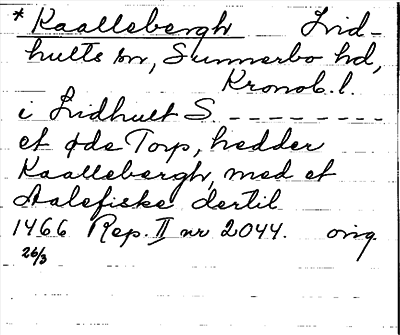 * Kaallebergh Lid-
hults sn, Sunnerbo hd,
Kronob. l.
i Lidhult S. - - - - - - - - -
et øde Torp, hedder
Kaallebergh, med et
Aalefiske dertil
1466 Rep. II nr 2044. orig.
26/3